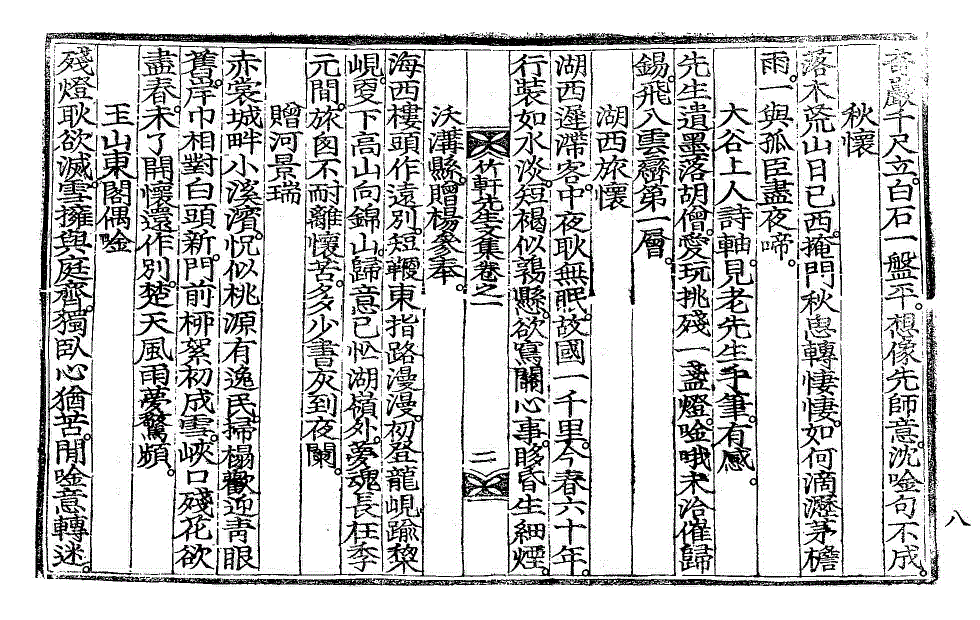 香嚴千尺立。白石一盤平。想像先師意。沈唫句不成。
秋懷
落木荒山日已西。掩門秋思轉悽悽。如何滴瀝茅檐
雨。一與孤臣盡夜啼。
大谷上人詩軸。見老先生手筆。有感。
先生遺墨落胡僧。愛玩挑殘一盞燈。唫哦未洽催歸
錫。飛入雲巒第一層。
湖西旅懷
湖西遲滯客。中夜耿無眠。故國一千里。今春六十年。
行裝如水淡。短褐似鶉懸。欲寫關心事。眵昏生細煙。
竹軒先生文集卷之一 二
沃溝縣。贈楊參奉。
海西樓頭作遠別。短鞭東指路漫漫。初登龍峴踰黎
峴。更下高山向錦山。歸意已忙湖嶺外。夢魂長在李
元間。旅囱不耐離懷苦。多少書灰到夜闌。
贈河景瑞
赤裳城畔小溪濱。怳似桃源有逸民。掃榻歡迎靑眼
舊。岸巾相對白頭新。門前柳絮初成雪。峽口殘花欲
盡春。未了開懷還作別。楚天風雨夢驚頻。
玉山東閣偶唫
殘燈耿欲滅。雪擁與庭齊。獨臥心猶苦。閒唫意轉迷。
八